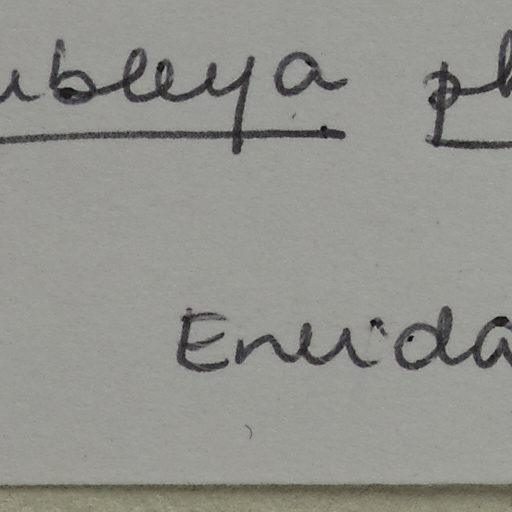 ubleya ph
Eneida